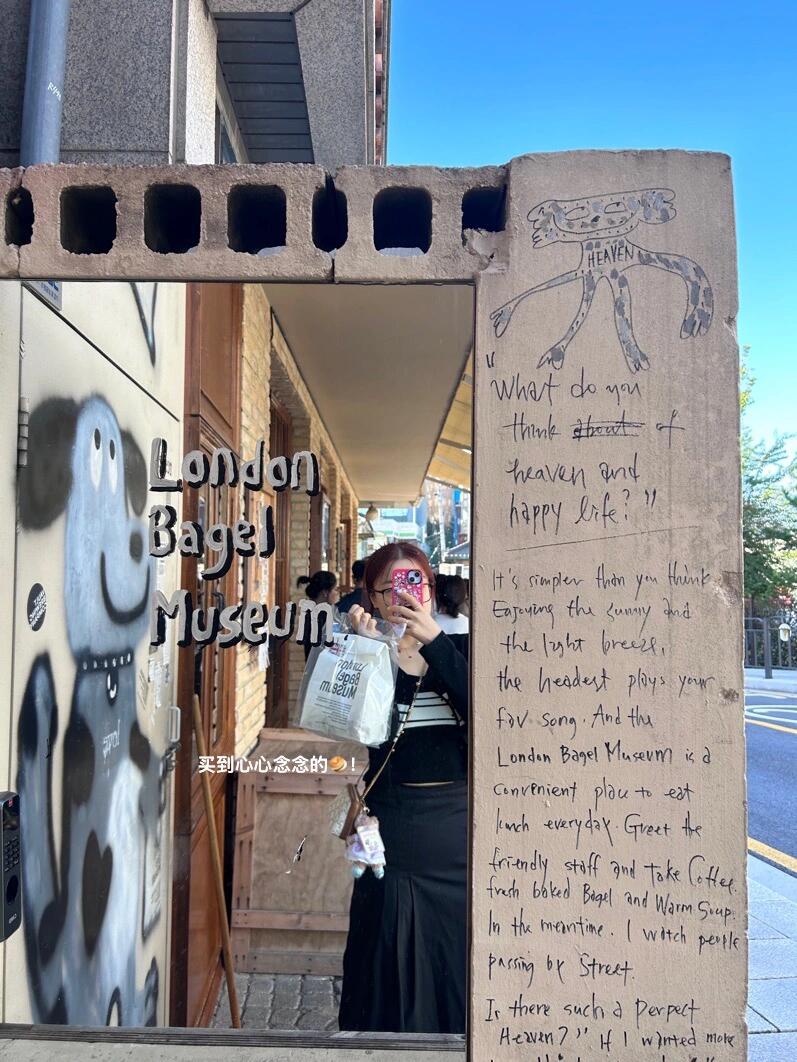 HEAVEN
"What do you
think about of
heaven and
happy life?"
It's simpler than you think.
Enjoying the sunny and
the light breeze,
the headest plays your
fav song. And the
London Bagel Museum is a
convenient place to eat
lunch everyday. Greet the
friendly staff and take Coffee.
fresh baked Bagel and Warm Soup.
In the meantime. I watch people
passing by Street.
Is there such a perpect
Heaven?" If I wanted more
London
Bagel
Museum
London
Bagel
Museum
买到心心念念的🥯!